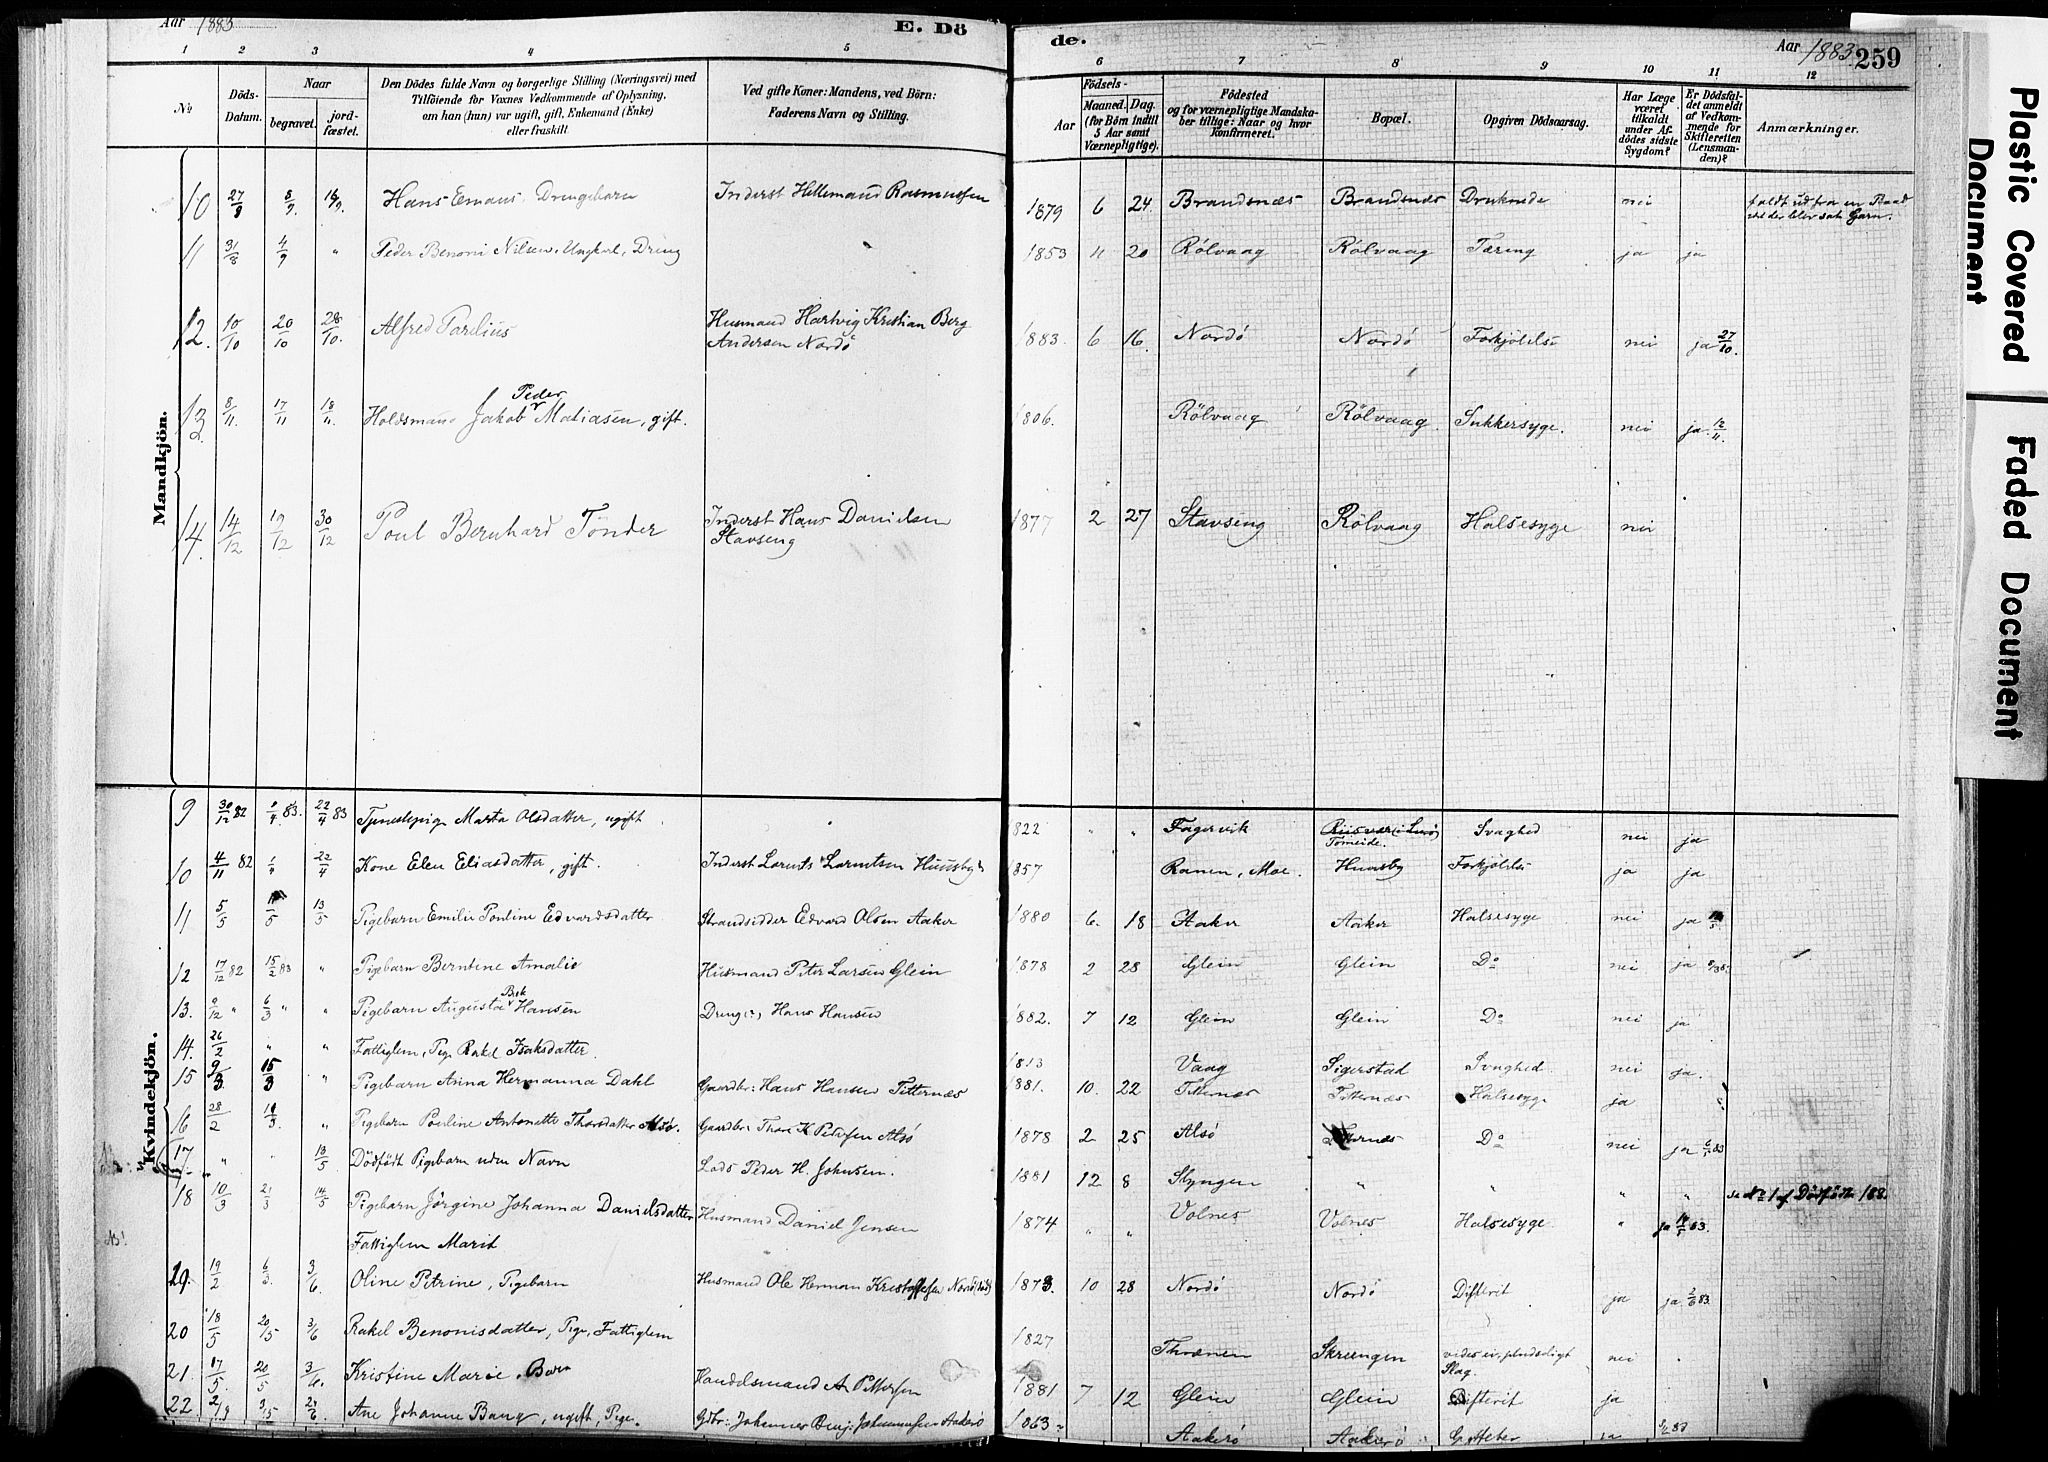 Aar 1883
E. Dö
de.
Aar 1883.
259
1 2 3 4 5 6 7 8 9 10 11 12
№
Döds-Datum.
Naar
begravet.
jord-fæstet.
Den Dödes fulde Navn og borgerlige Stilling (Næringsvei) med
Tilföiende for Voxnes Vedkommende af Oplysning,
om han (hun) var ugift, gift, Enkemand (Enke)
eller fraskilt.
Ved gifte Koner: Mandens, ved Börn:
Faderens Navn og Stilling.
Födsels-
Aar
Maaned.
Dag.
(for Börn indtil
5 Aar samt
Værnepligtige).
Födested
og for værnepligtige Mandska-
ber tillige: Naar og hvor
konfirmeret.
Bopæl.
Opgiven Dödsaarsag.
Har Læge
været
tilkaldt
under Af-
dödes sidste
Sygdom?
Er Dödsfal-
det anmeldt
af Vedkom-
mende for
Skifteretten
(Lensman-
den)?
Anmærkninger.
Mandkjön.
10 27/8 8/9 16/9. Hans Emaus Drengebarn Inderst Hellemand Rasmussen 1879 6 24 Brandsnæs Brandsnæs Druknede nei faldt ud fra en Baad
ved der blev sat Garn.
11 31/8 4/9 " Peder Benoni Nilsen, Ungkarl, Dreng 1853 11 20 Rölvaag Rölvaag Tæring ja ja
12. 10/10 20/10 28/10. Alfred Parelius Husmand Hartvig Kristian Berg
Andersen Nordö 1883. 6 16. Nordö Nordö Forkjölelse nei ja 27/10.
Peder
13. 8/11. 17/11 18/11. Holdsmand Jakob Matiasen, gift. 1806. Rölvaag Rölvaag. Sukkersyge. nei ja 12/11.
14. 14/12 19/12 30/12 Poul Bernhard Tönder Inderst Hans Danielsen
Stavseng 1877 2 27 Stavseng Rölvaag Halsesyge nei
Kvindekjön.
9 30/12 82 /4. 83. 22/4 83 Tjenestepige Marta Olsdatter, ugift 1822 " " Fagervik
Tomeide. Svaghed nei ja
10 4/11 82 22/4 Kone Elen Eliasdatter, gift. Inderst Lorents Lorentsen Huusby 1857 Ranen, Moe. Huusby Forkjölelse ja ja
11 5/5 /5 13/5 Pigebarn Emilie Pouline Edvardsdatter Strandsidder Edvard Olsen Aaker 1880 6. 18 Aaker Aaker Halsesyge nei ja
12 17/12 82 15/2 83 " Pigebarn Berntine Amalie Husmand Peter Larsen Glein 1878 2 28 Glein Glein Do nei ja
Bek
13. /12 " 6/3 " " Pigebarn Augusta Hansen Dreng, Hans Hansen 1882. 7 12 Glein Glein Do nei ja
14. 26/2 " " Fattiglem, Pige Rakel Isaksdatter. 1813 Vaag Sigerstad Svaghed nei ja.
15 9/3 15/3 " Pigebarn Anna Hermanna Dahl Gaardbr: Hans Hansen Titternæs 1881. 10. 22 Titternæs Titternæs Halsesyge ja
16 28/2 /3. " Pigebarn Pouline Antonette Thorsdatter Alsö. Gaardbr: Thore K Pedersen Alsö 1878 2 25 Alsö Do nei ja
17 " " 13/5 Dödfödt Pigebarn uden Navn Lods Peder H. Johnsen. 1881 12 8 Slyngen " " " " se No 1 af Dödfödte 188
18 10/3 21/3 14/5 Pigebarn Jörgine Johanna Danielsdatter Husmand Daniel Jensen 1874 " " Volnes Volnes Halsesyge " ja 83.
Fattiglem Marit
29. 19/2 6/3. 3/6. Oline Petrine, Pigebarn Husmand Ole Herman Kristoffersen Nordö 1873. 10 28 Nordö Nordö Difterit ja ja 2/6 83.
20 18/5 20/5 3/6 Rakel Benonisdatter, Pige, Fattiglem 1827 Thrænen Skreengen vides ei, pludseligt
Slag. nei
21. 17/5. 20/5 3/6. Kristine Marie, Barn Handelsmand A. Pettersen 1881 7 12 Glein Glein Difterit ja
22 Ane Johanne Bang, ugift, Pige. Gdbr: Johannes Benj: Johannesen Aakerö 1863 Aakerö Aakerö ja
Plastic Covered Document
Faded Document